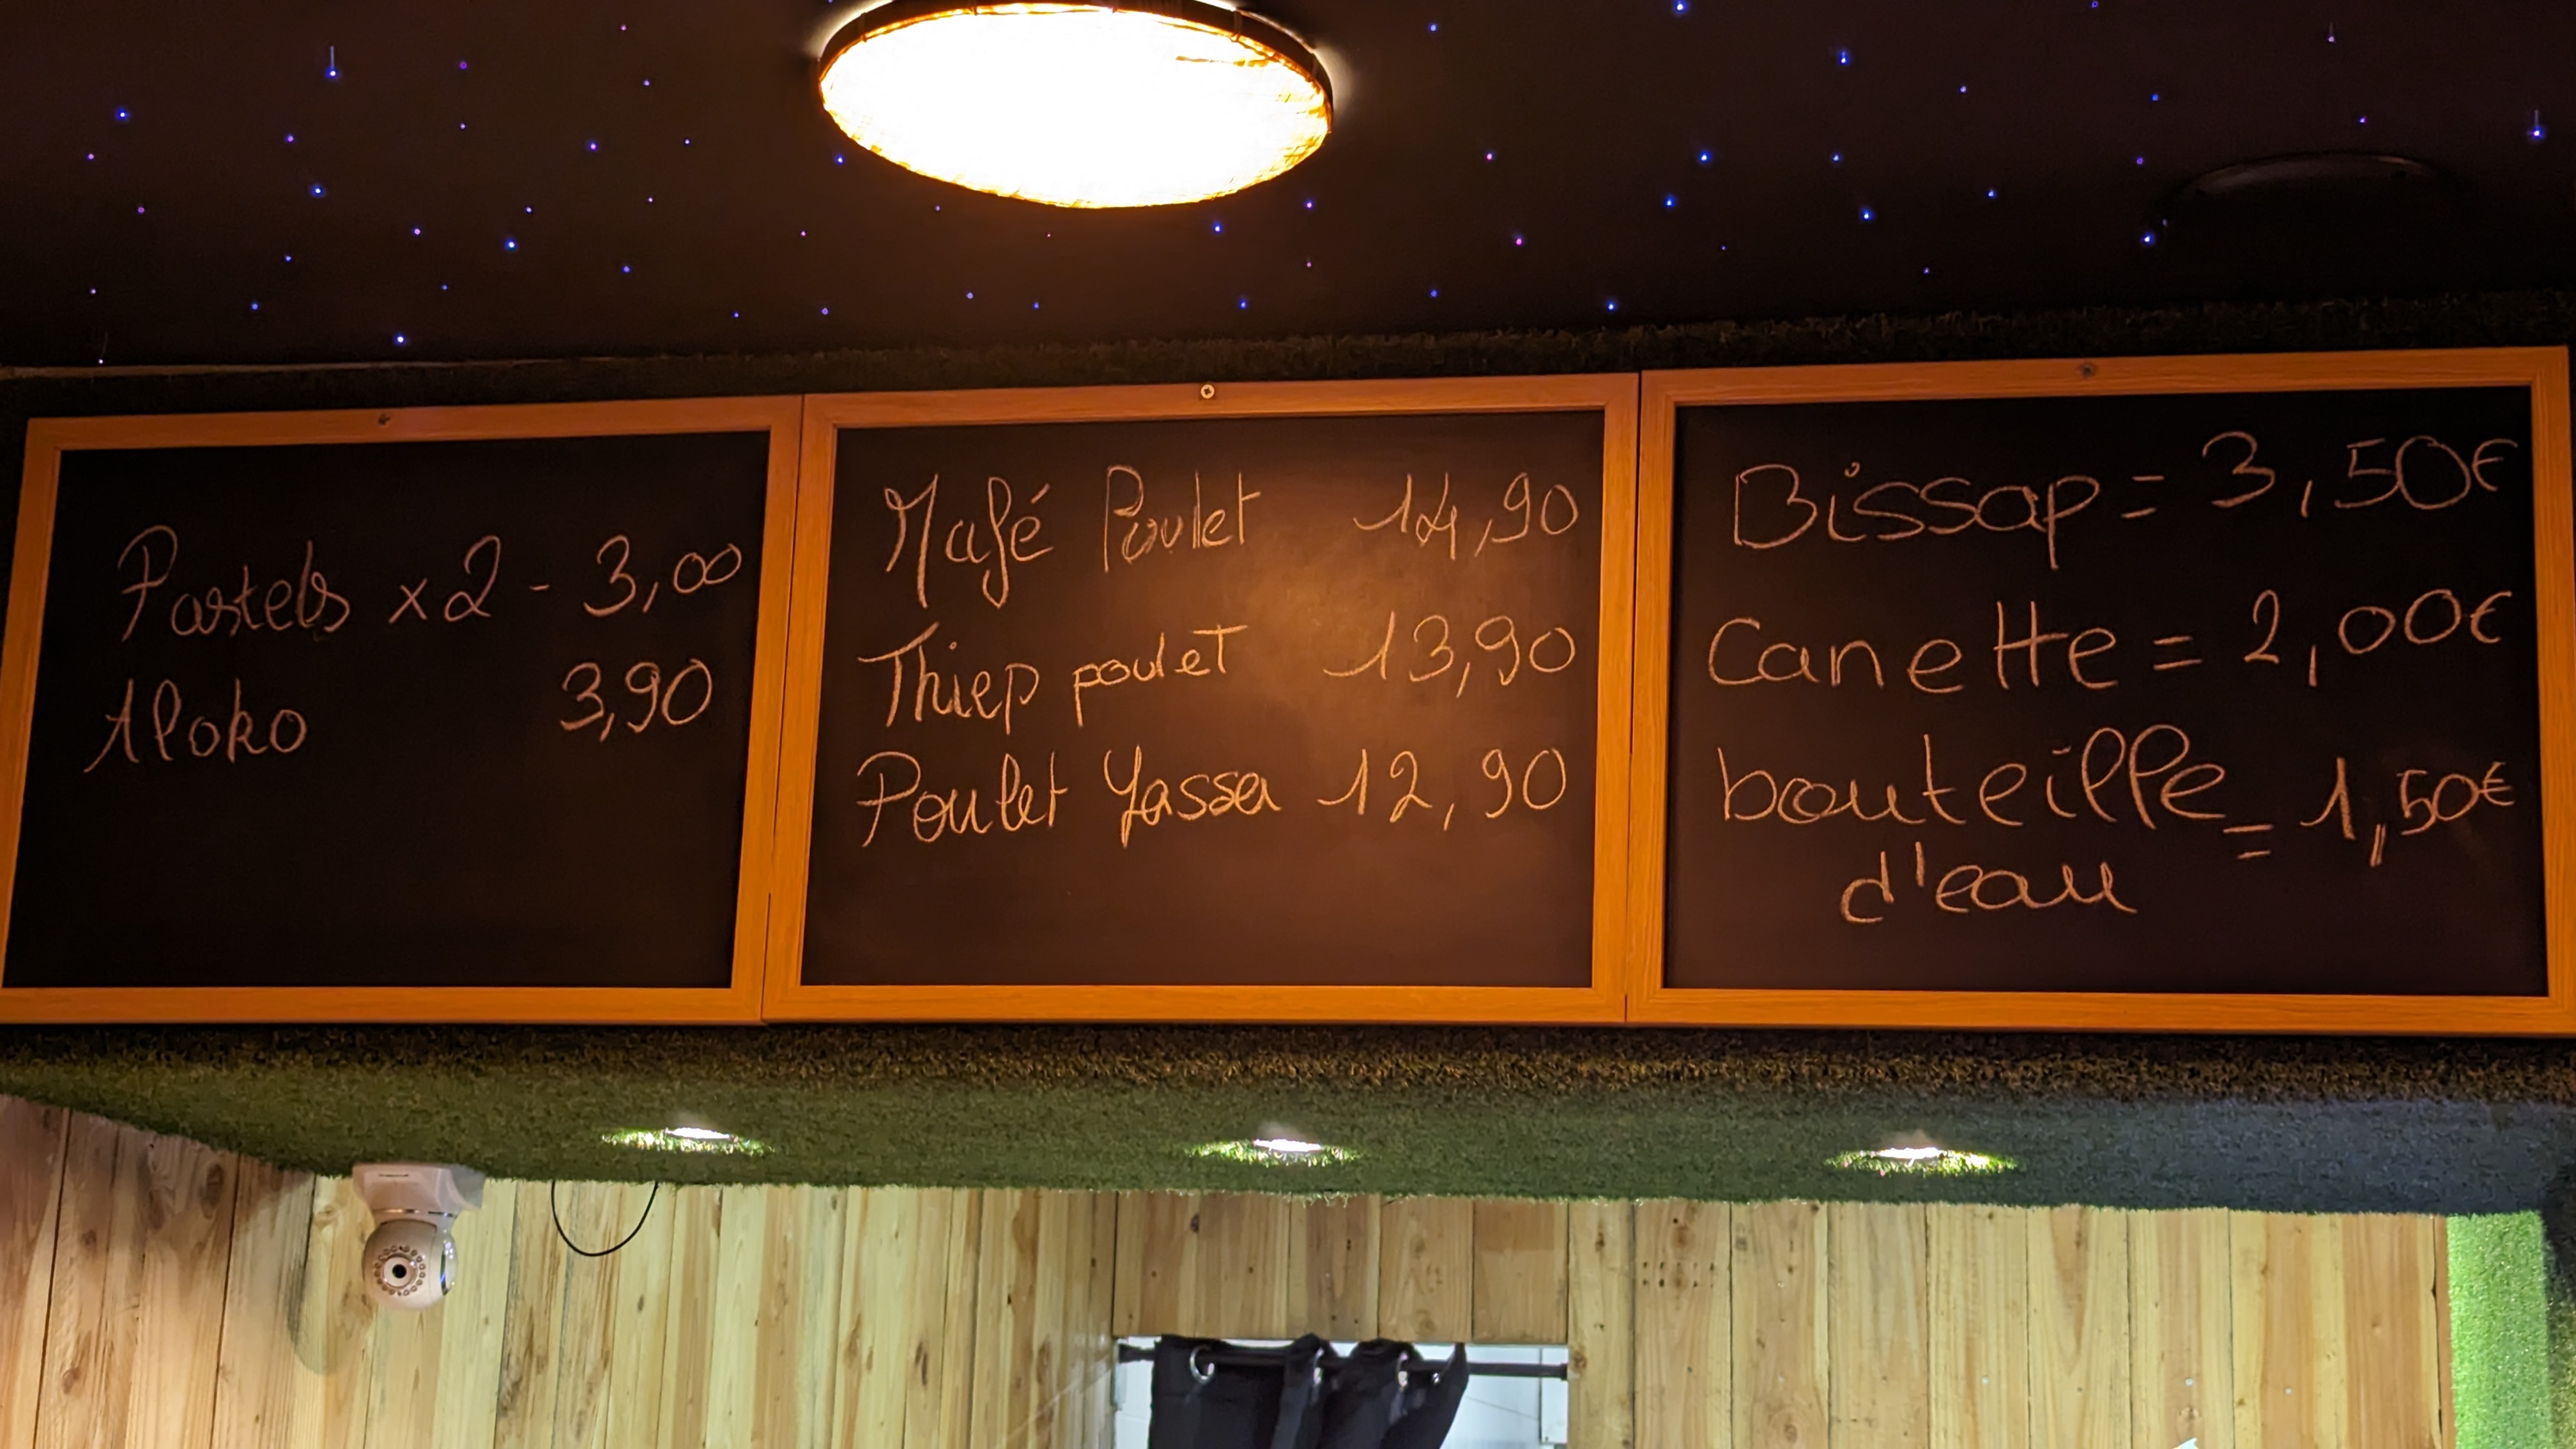 Pastels x2 - 3,00
Aloko 3,90
Mafé Poulet 14,90
Thiep poulet 13,90
Poulet Yassa 12,90
Bissap = 3,50€
Canette = 2,00€
bouteille = 1,50€
d'eau